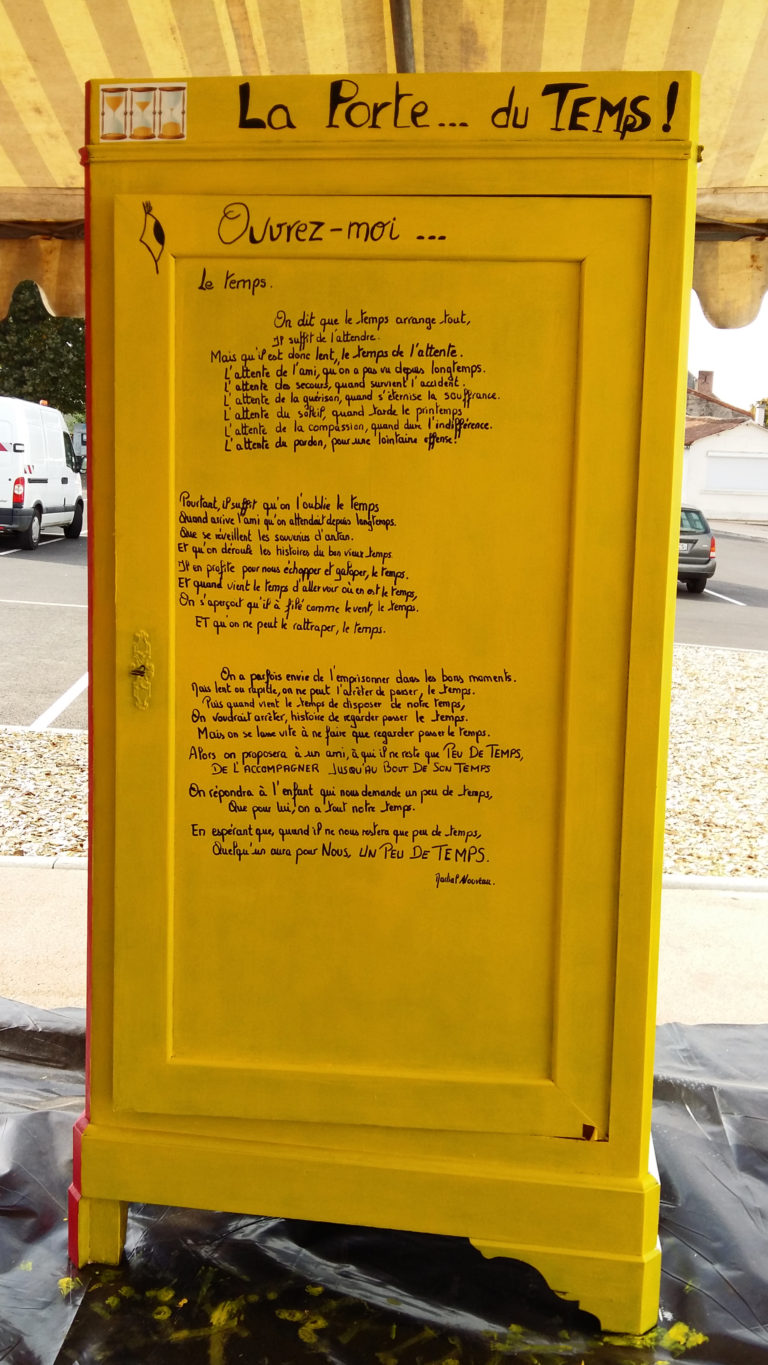 La Porte... du TEMPS!
Ouvrez-moi ...
Le temps.
On dit que le temps arrange tout,
Il suffit de l'attendre.
Mais qu'il est donc lent, le temps de l'attente.
L'attente de l'ami, qu'on a pas vu depuis longtemps.
L'attente des secours, quand survient l'accident.
L'attente de la guérison, quand s'éternise la souffrance.
L'attente du soleil, quand tarde le printemps
L'attente de la compassion, quand dure l'indifférence.
L'attente du pardon, pour une lointaine offense!
Pourtant, il suffit qu'on l'oublie le temps
Quand arrive l'ami qu'on attendait depuis longtemps.
Que se réveillent les souvenirs d'antan.
Et qu'on déroule les histoires du bon vieux temps.
Il en profite pour nous échapper et galoper, le temps.
Et quand vient le temps d'aller voir où en est le temps,
On s'aperçoit qu'il à filé comme le vent, le temps.
ET qu'on ne peut le rattraper, le temps.
On a parfois envie de l'emprisonner dans les bons moments.
Mais lent ou rapide, on ne peut l'arrêter de passer, le temps.
Puis quand vient le temps de disposer de notre temps,
On voudrait arrêter, histoire de regarder passer le temps.
Mais on se lasse vite à ne faire que regarder passer le temps.
Alors on proposera à un ami, à qui il ne reste que PEU DE TEMPS,
DE L'ACCOMPAGNER JUSQU'AU BOUT DE SON TEMPS
On répondra à l'enfant qui nous demande un peu de temps,
Que pour lui, on a tout notre temps.
En espérant que, quand il ne nous restera que peu de temps,
Quelqu'un aura pour NOUS, UN PEU DE TEMPS.
Nouveau.